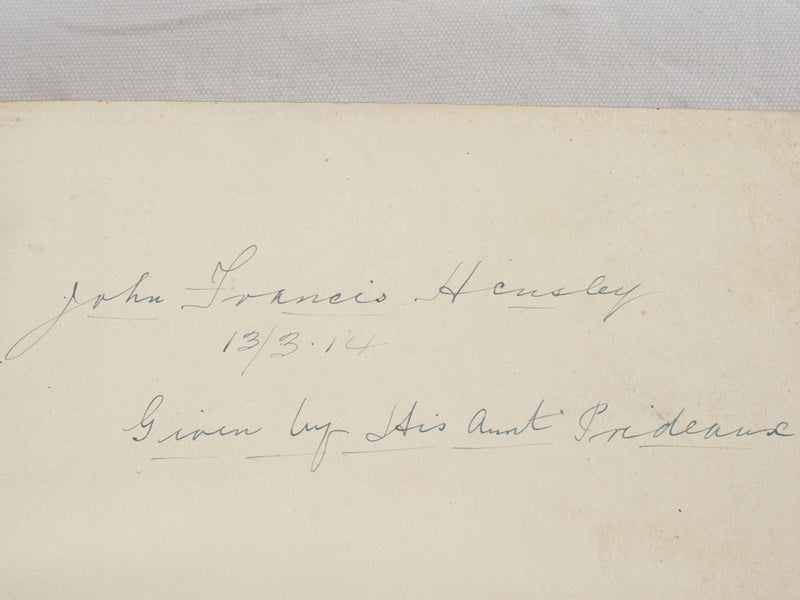 John Francis Hensley
13/3.14
Given by His Aunt Prideaux